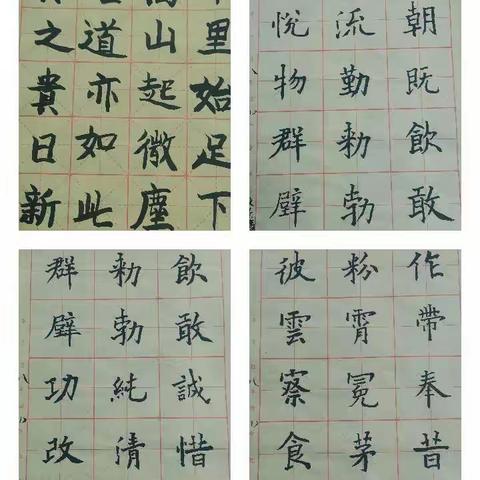 里始足下
山起微塵
道亦如此
之貴日新
朝既飲敢
流勤勑勃
悅物群壁
飲敢誠惜
勑勃純清
群壁功改
作帶奉昔
粉霄冕茅
彼雲察食